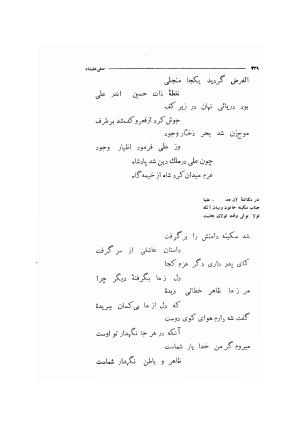 ۴۳۹
صفی علیشاه
الغرض گردید یکجا منجلی
نقطهٔ ذات حسین اندر علی
بود دریائی نهان در زیر کف
جوش کرد از قعر و کف شد برطرف
موج‌زن شد بحر ذخار وجود
وز علی فرمود اظهار وجود
چون علی در ملک دین شد پادشاه
عزم میدان کرد شاه از خیمه‌گاه
در مکالمهٔ آن
جناب سکینه خاتون و بیان آنکه
شد سکینه دامنش را برگرفت
داستان عاشقی از سر گرفت
کای پدر داری دگر عزم کجا
دل ز ما بگرفتهٔ دیگر چرا
مر ز ما ظاهر خطائی دیدهٔ
که دل از ما بی‌کسان ببریدهٔ
گفت شه دارم هوای کوی دوست
آنکه در هر جا نگهدار تو اوست
میروم گر من خدا یار شماست
ظاهر و باطن نگهدار شماست